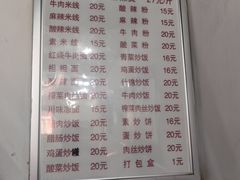 27元/斤
牛肉米线 20元
麻辣米线 20元
酸辣米线 20元
素米线 15元
红烧牛肉面 20元
担担面 20元
酸辣粉 20元
麻辣粉 20元
牛肉粉 20元
酸菜粉 20元
青菜炒饭 16元
鸡蛋炒饭 16元
什锦炒饭 20元
牛肉炒饭 20元
榨菜肉丝炒饭 20元
素炒饼 16元
蛋炒饼 20元
肉丝炒饼 20元
打包盒 1元
榨菜肉丝面 20元
川味泡面 15元
肉丝炒面 20元
腊肠炒饭 20元
鸡蛋炒 20元
酸菜炒饭 20元